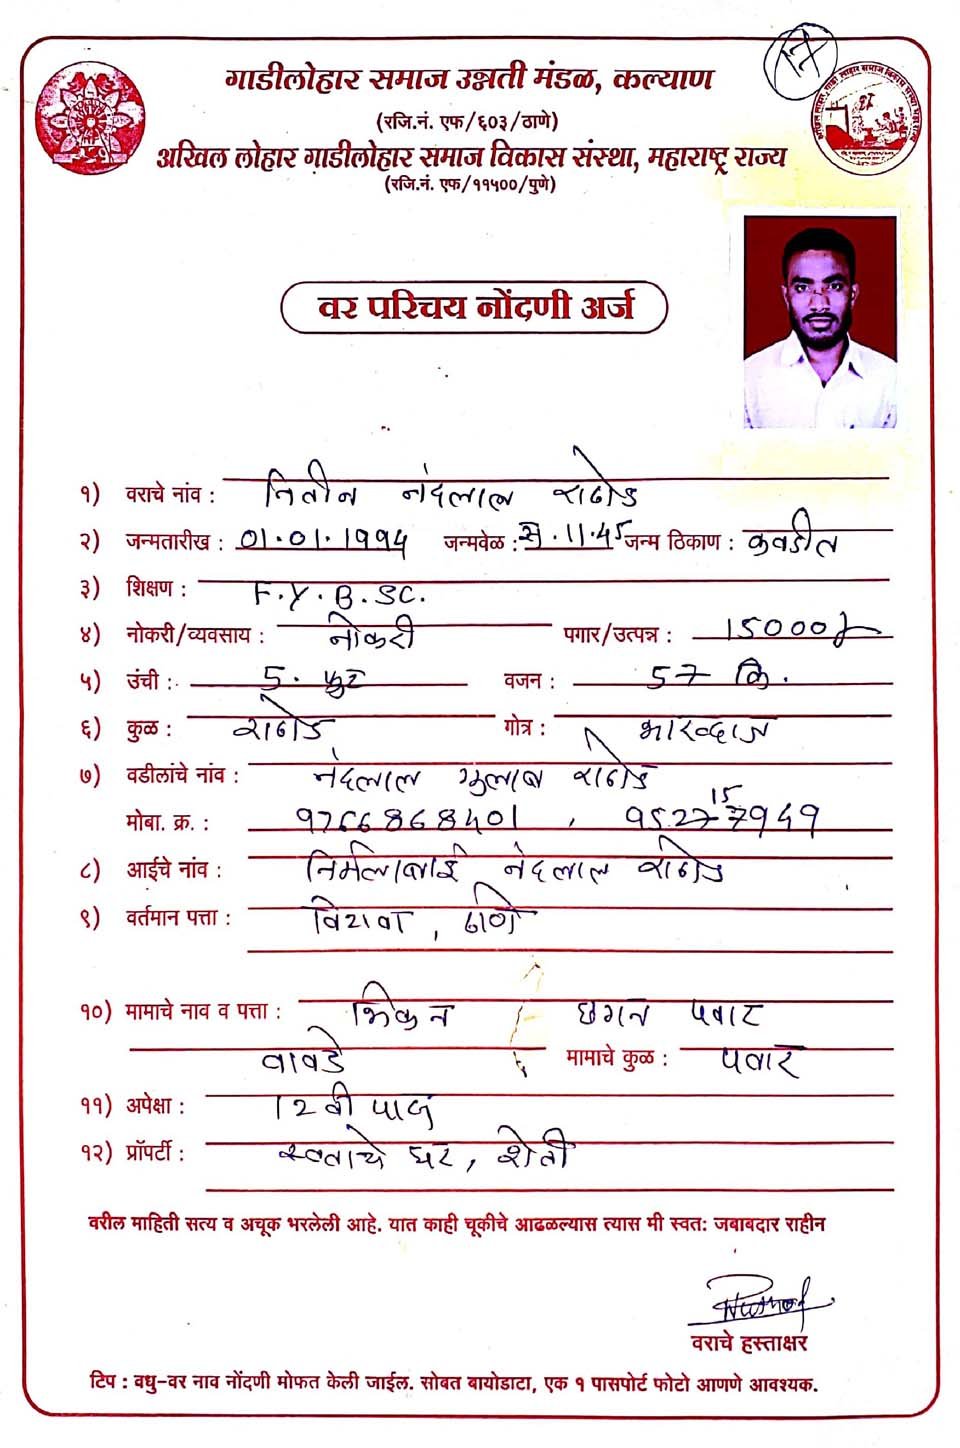 17
गाडीलोहार समाज उन्नती मंडळ, कल्याण
(रजि.नं. एफ/६०३/ठाणे)
अखिल लोहार गाडीलोहार समाज विकास संस्था, महाराष्ट्र राज्य
(रजि.नं. एफ/११५००/पुणे)
वर परिचय नोंदणी अर्ज
१) वराचे नांव : नितीन नंदलाल राठोड
२) जन्मतारीख : 01.01.1994 जन्मवेळ : स.11.45 जन्म ठिकाण : कवडीत
३) शिक्षण : F.Y.B.SC.
४) नोकरी/व्यवसाय : नोकरी पगार/उत्पन्न : 15000/-
५) उंची : 5. फुट वजन : 57 कि.
६) कुळ : राठोड गोत्र : भारव्दाज
७) वडीलांचे नांव : नंदलाल गुलाब राठोड
मोबा. क्र. : 9766868401 ,
८) आईचे नांव : निर्मलाबाई नंदलाल राठोड
९) वर्तमान पत्ता : विटावा , ठाणे
१०) मामाचे नाव व पत्ता : भिकन छगन पवार
वावडे मामाचे कुळ : पवार
११) अपेक्षा : 12 वी पास
१२) प्रॉपर्टी : स्वताचे घर, शेती
वरील माहिती सत्य व अचूक भरलेली आहे. यात काही चूकीचे आढळल्यास त्यास मी स्वत: जबाबदार राहीन
वराचे हस्ताक्षर
टिप : वधु-वर नाव नोंदणी मोफत केली जाईल. सोबत बायोडाटा, एक १ पासपोर्ट फोटो आणणे आवश्यक.